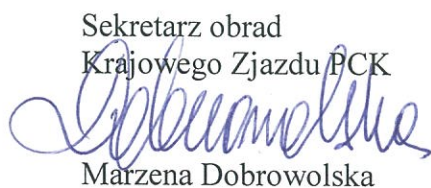 Sekretarz obrad
Krajowego Zjazdu PCK
Dobrowolska
Marzena Dobrowolska